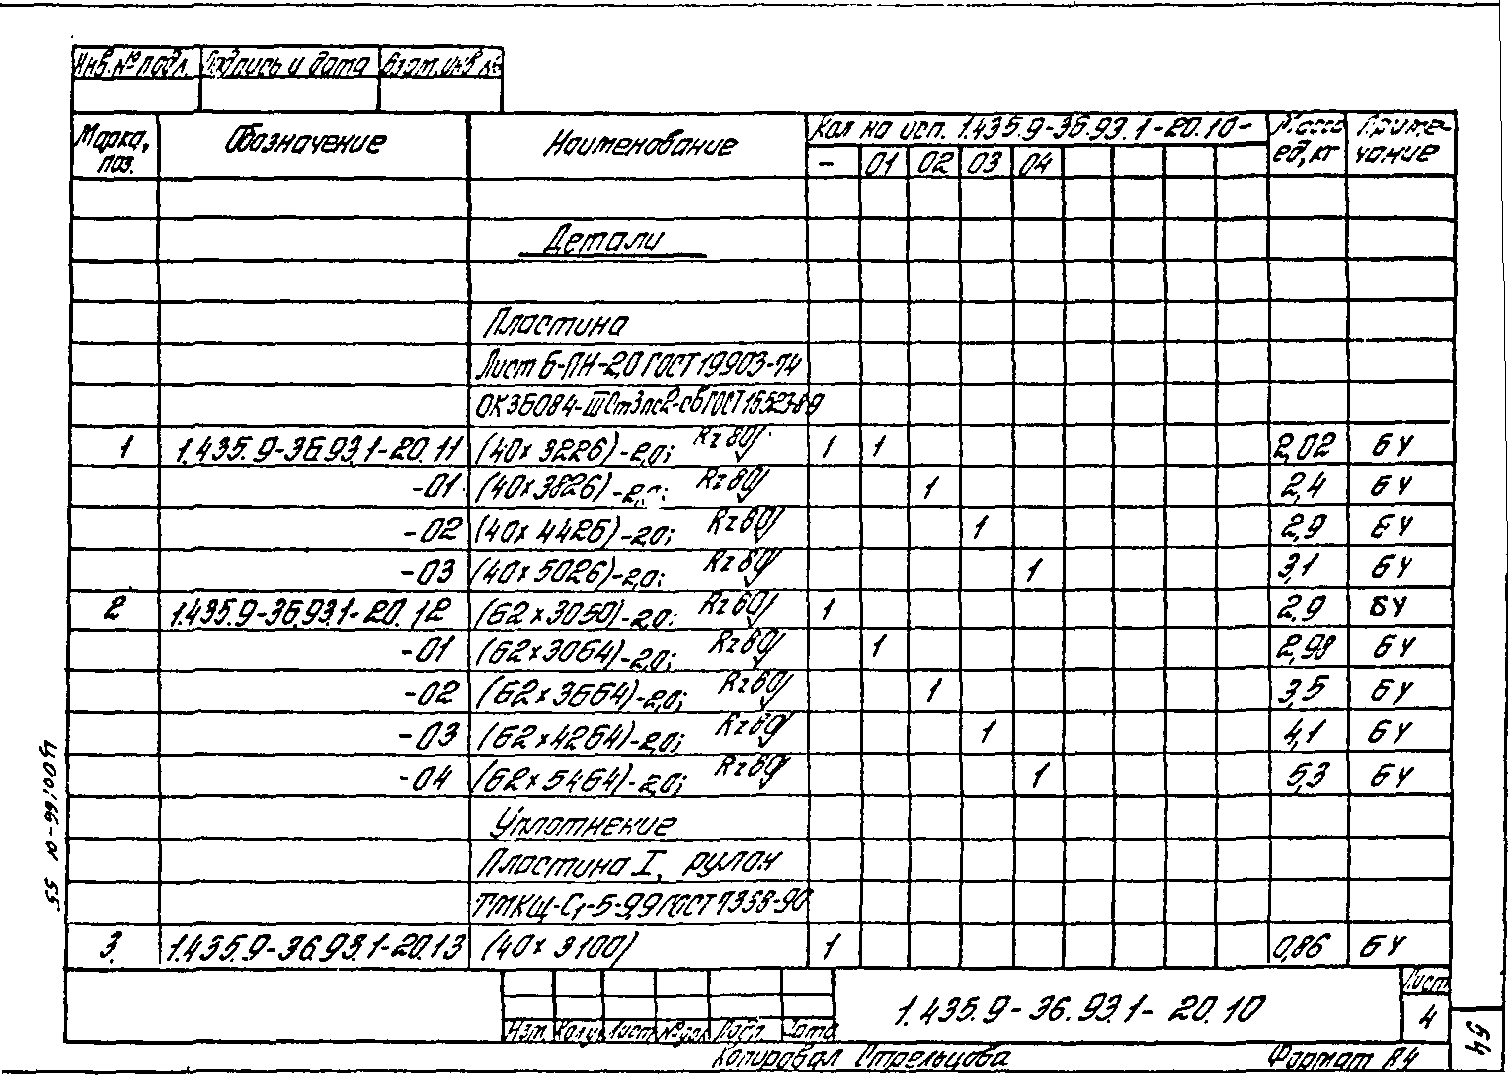 Инв.№ подл. Подпись и дата Взам.инв.№
Марка, поз. Обозначение Наименование Кол на исп. 1.435.9-36.93.1-20.10- Масса ед, кг Приме-чание
- 01 02 03 04
Детали
Пластина
Лист Б-ПН-2,0 ГОСТ 19903-74
ОК360В4-III Ст3пс2-св ГОСТ 16523-89
1 1.435.9-36.93.1-20.11 (40х3226)-2,0; Rz80 1 1 2,02 БЧ
-01 (40х3826)-2,0; Rz80 1 2,4 БЧ
-02 (40х4426)-2,0; Rz80 1 2,9 БЧ
-03 (40х5026)-2,0; Rz80 1 3,1 БЧ
2 1.435.9-36.93.1-20.12 (62х3050)-2,0; Rz80 1 2,9 БЧ
-01 (62х3064)-2,0; Rz80 1 2,98 БЧ
-02 (62х3664)-2,0; Rz80 1 3,5 БЧ
-03 (62х4264)-2,0; Rz80 1 4,1 БЧ
-04 (62х5464)-2,0; Rz80 1 5,3 БЧ
Уплотнение
Пластина I, рулон
ТМКЩ-С1-5-9,9 ГОСТ 7338-90
3. 1.435.9-36.93.1-20.13 (40х3100) 1 0,86 БЧ
Изм. Кол.уч Лист №док Подп. Дата
1.435.9-36.93.1-20.10
Лист
4
Копировал Стрельцова Формат А4
54
Ц00166-01 55